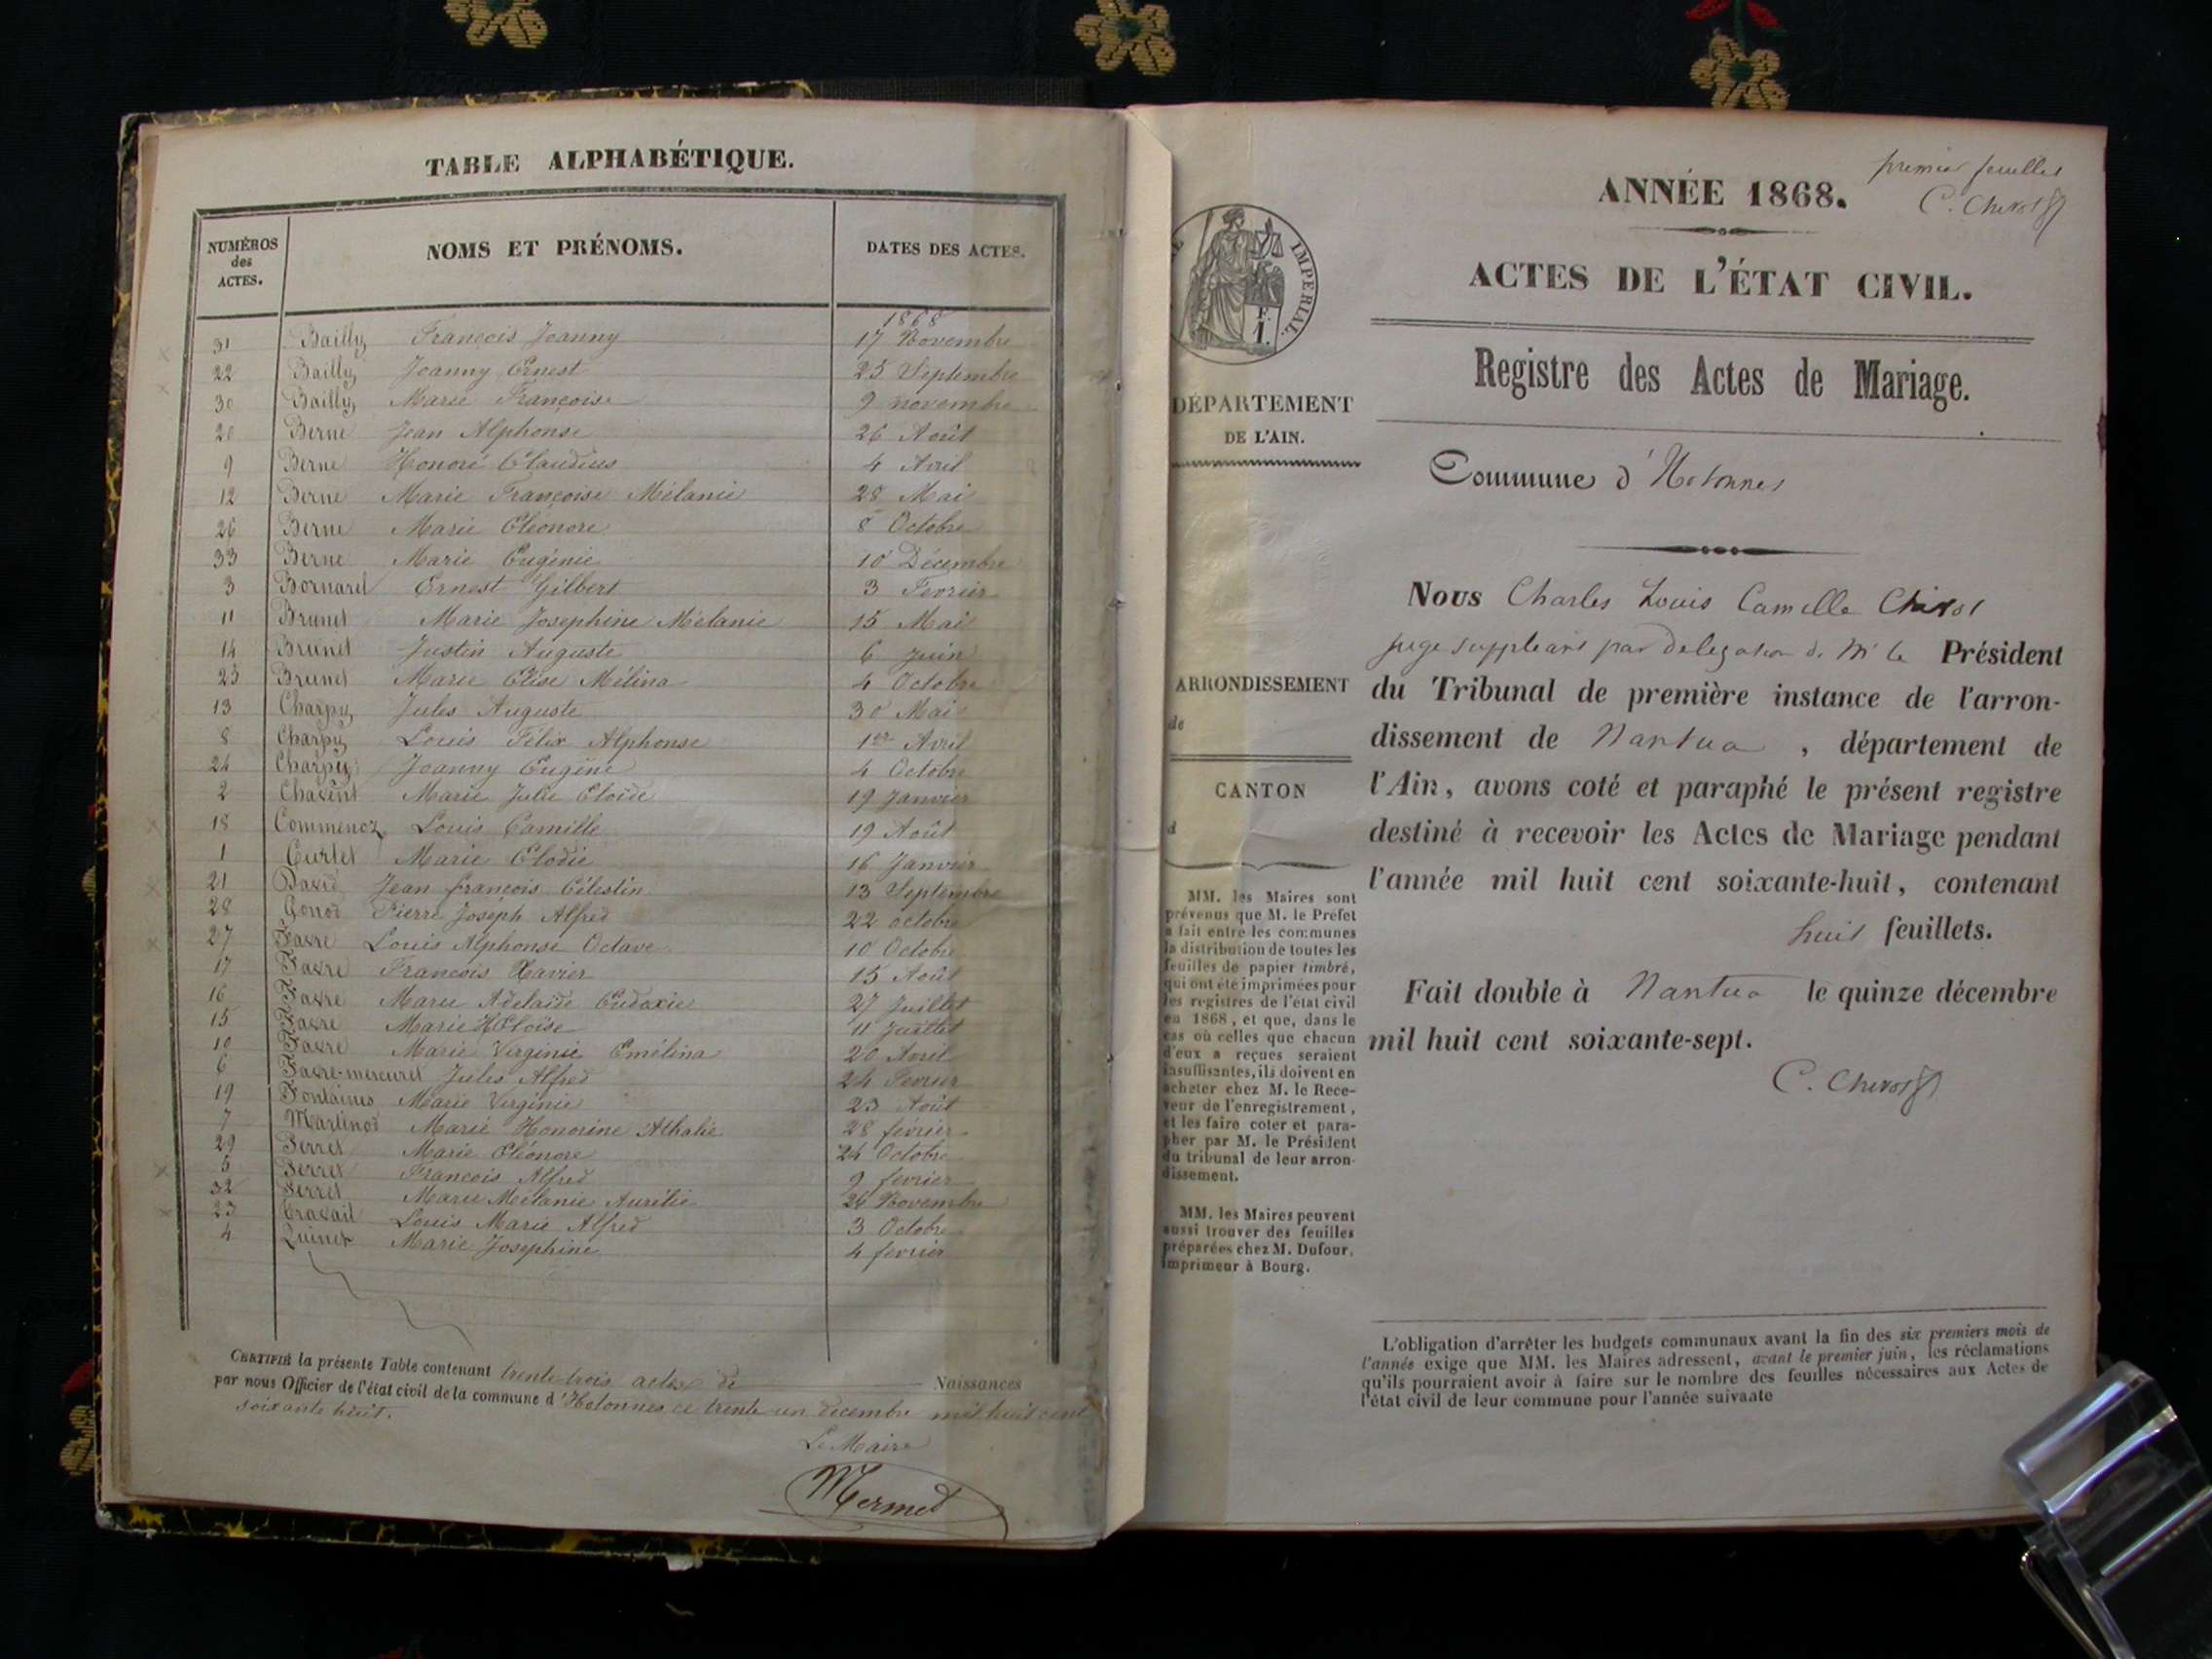 TABLE ALPHABÉTIQUE.
NUMÉROS des ACTES.
NOMS ET PRÉNOMS.
DATES DES ACTES.
1868
31 Bailly François Joanny 17 Novembre
22 Bailly Joanny Ernest 25 Septembre
30 Bailly Marie Françoise 9 novembre
20 Berne Jean Alphonse 26 Août
9 Berne Honoré Claudius 4 Avril
12 Berne Marie Françoise Mélanie 28 Mai
26 Berne Marie Eléonore 8 Octobre
33 Berne Marie Eugénie 10 Décembre
3 Bornarel Ernest Gilbert 3 Fevrier
11 Brunet Marie Josephine Mélanie 15 Mai
14 Brunet Justin Auguste 6 Juin
25 Brunet Marie Elise Mélina 4 Octobre
13 Charpy Jules Auguste 30 Mai
8 Charpy Louis Félix Alphonse 1er Avril
24 Charpy Joanny Eugène 4 Octobre
2 Chavent Marie Julie Eloïde 19 Janvier
18 Commenoz Louis Camille 19 Août
1 Curtet Marie Elodie 16 Janvier
21 David Jean françois Célestin 13 Septembre
28 Gonod Pierre Joseph Alfred 22 octobre
27 Favre Louis Alphonse Octave 10 Octobre
17 Favre Francois Xavier 15 Août
16 Favre Marie Adelaide Eudoxie 27 Juillet
15 Favre Marie Héloïse 11 Juillet
10 Favre Marie Virginie Emélina 20 Avril
6 Favre-mercuret Jules Alfred 24 Fevrier
19 Fontaines Marie Virginie 23 Août
7 Martinod Marie Honorine Athalie 28 fevrier
29 Perret Marie Eléonore 24 Octobre
5 Perret Francois Alfred 9 fevrier
32 Perret Marie Mélanie Aurélie 24 Novembre
23 Travail Louis Marie Alfred 3 Octobre
4 Quinet Marie Josephine 4 fevrier
CERTIFIÉ la présente Table contenant trente-trois actes de Naissances
par nous Officier de l'état civil de la commune d'Hotonnes ce trente un decembre mil huit cent
soixante huit.
Le Maire
Mermet
premier feuillet
C. Chevot
ANNÉE 1868.
ACTES DE L'ÉTAT CIVIL.
IMPERIAL.
F.
1.
Registre des Actes de Mariage.
DÉPARTEMENT
DE L'AIN.
Commune d'Hotonnes
ARRONDISSEMENT
de
CANTON
d
MM. les Maires sont
prévenus que M. le Préfet
a fait entre les communes
la distribution de toutes les
feuilles de papier timbré,
qui ont été imprimées pour
les registres de l'état civil
en 1868, et que, dans le
cas où celles que chacun
d'eux a reçues seraient
insuffisantes, ils doivent en
acheter chez M. le Rece-
veur de l'enregistrement,
et les faire coter et para-
pher par M. le Président
du tribunal de leur arron-
dissement.
MM. les Maires peuvent
aussi trouver des feuilles
préparées chez M. Dufour,
imprimeur à Bourg.
Nous Charles Louis Camille Chevot
juge suppléant par delegation de Mr le Président
du Tribunal de première instance de l'arron-
dissement de Nantua, département de
l'Ain, avons coté et paraphé le présent registre
destiné à recevoir les Actes de Mariage pendant
l'année mil huit cent soixante-huit, contenant
huit feuillets.
Fait double à Nantua le quinze décembre
mil huit cent soixante-sept.
C. Chevot
L'obligation d'arrêter les budgets communaux avant la fin des six premiers mois de
l'année exige que MM. les Maires adressent, avant le premier juin, les réclamations
qu'ils pourraient avoir à faire sur le nombre des feuilles nécessaires aux Actes de
l'état civil de leur commune pour l'année suivaate